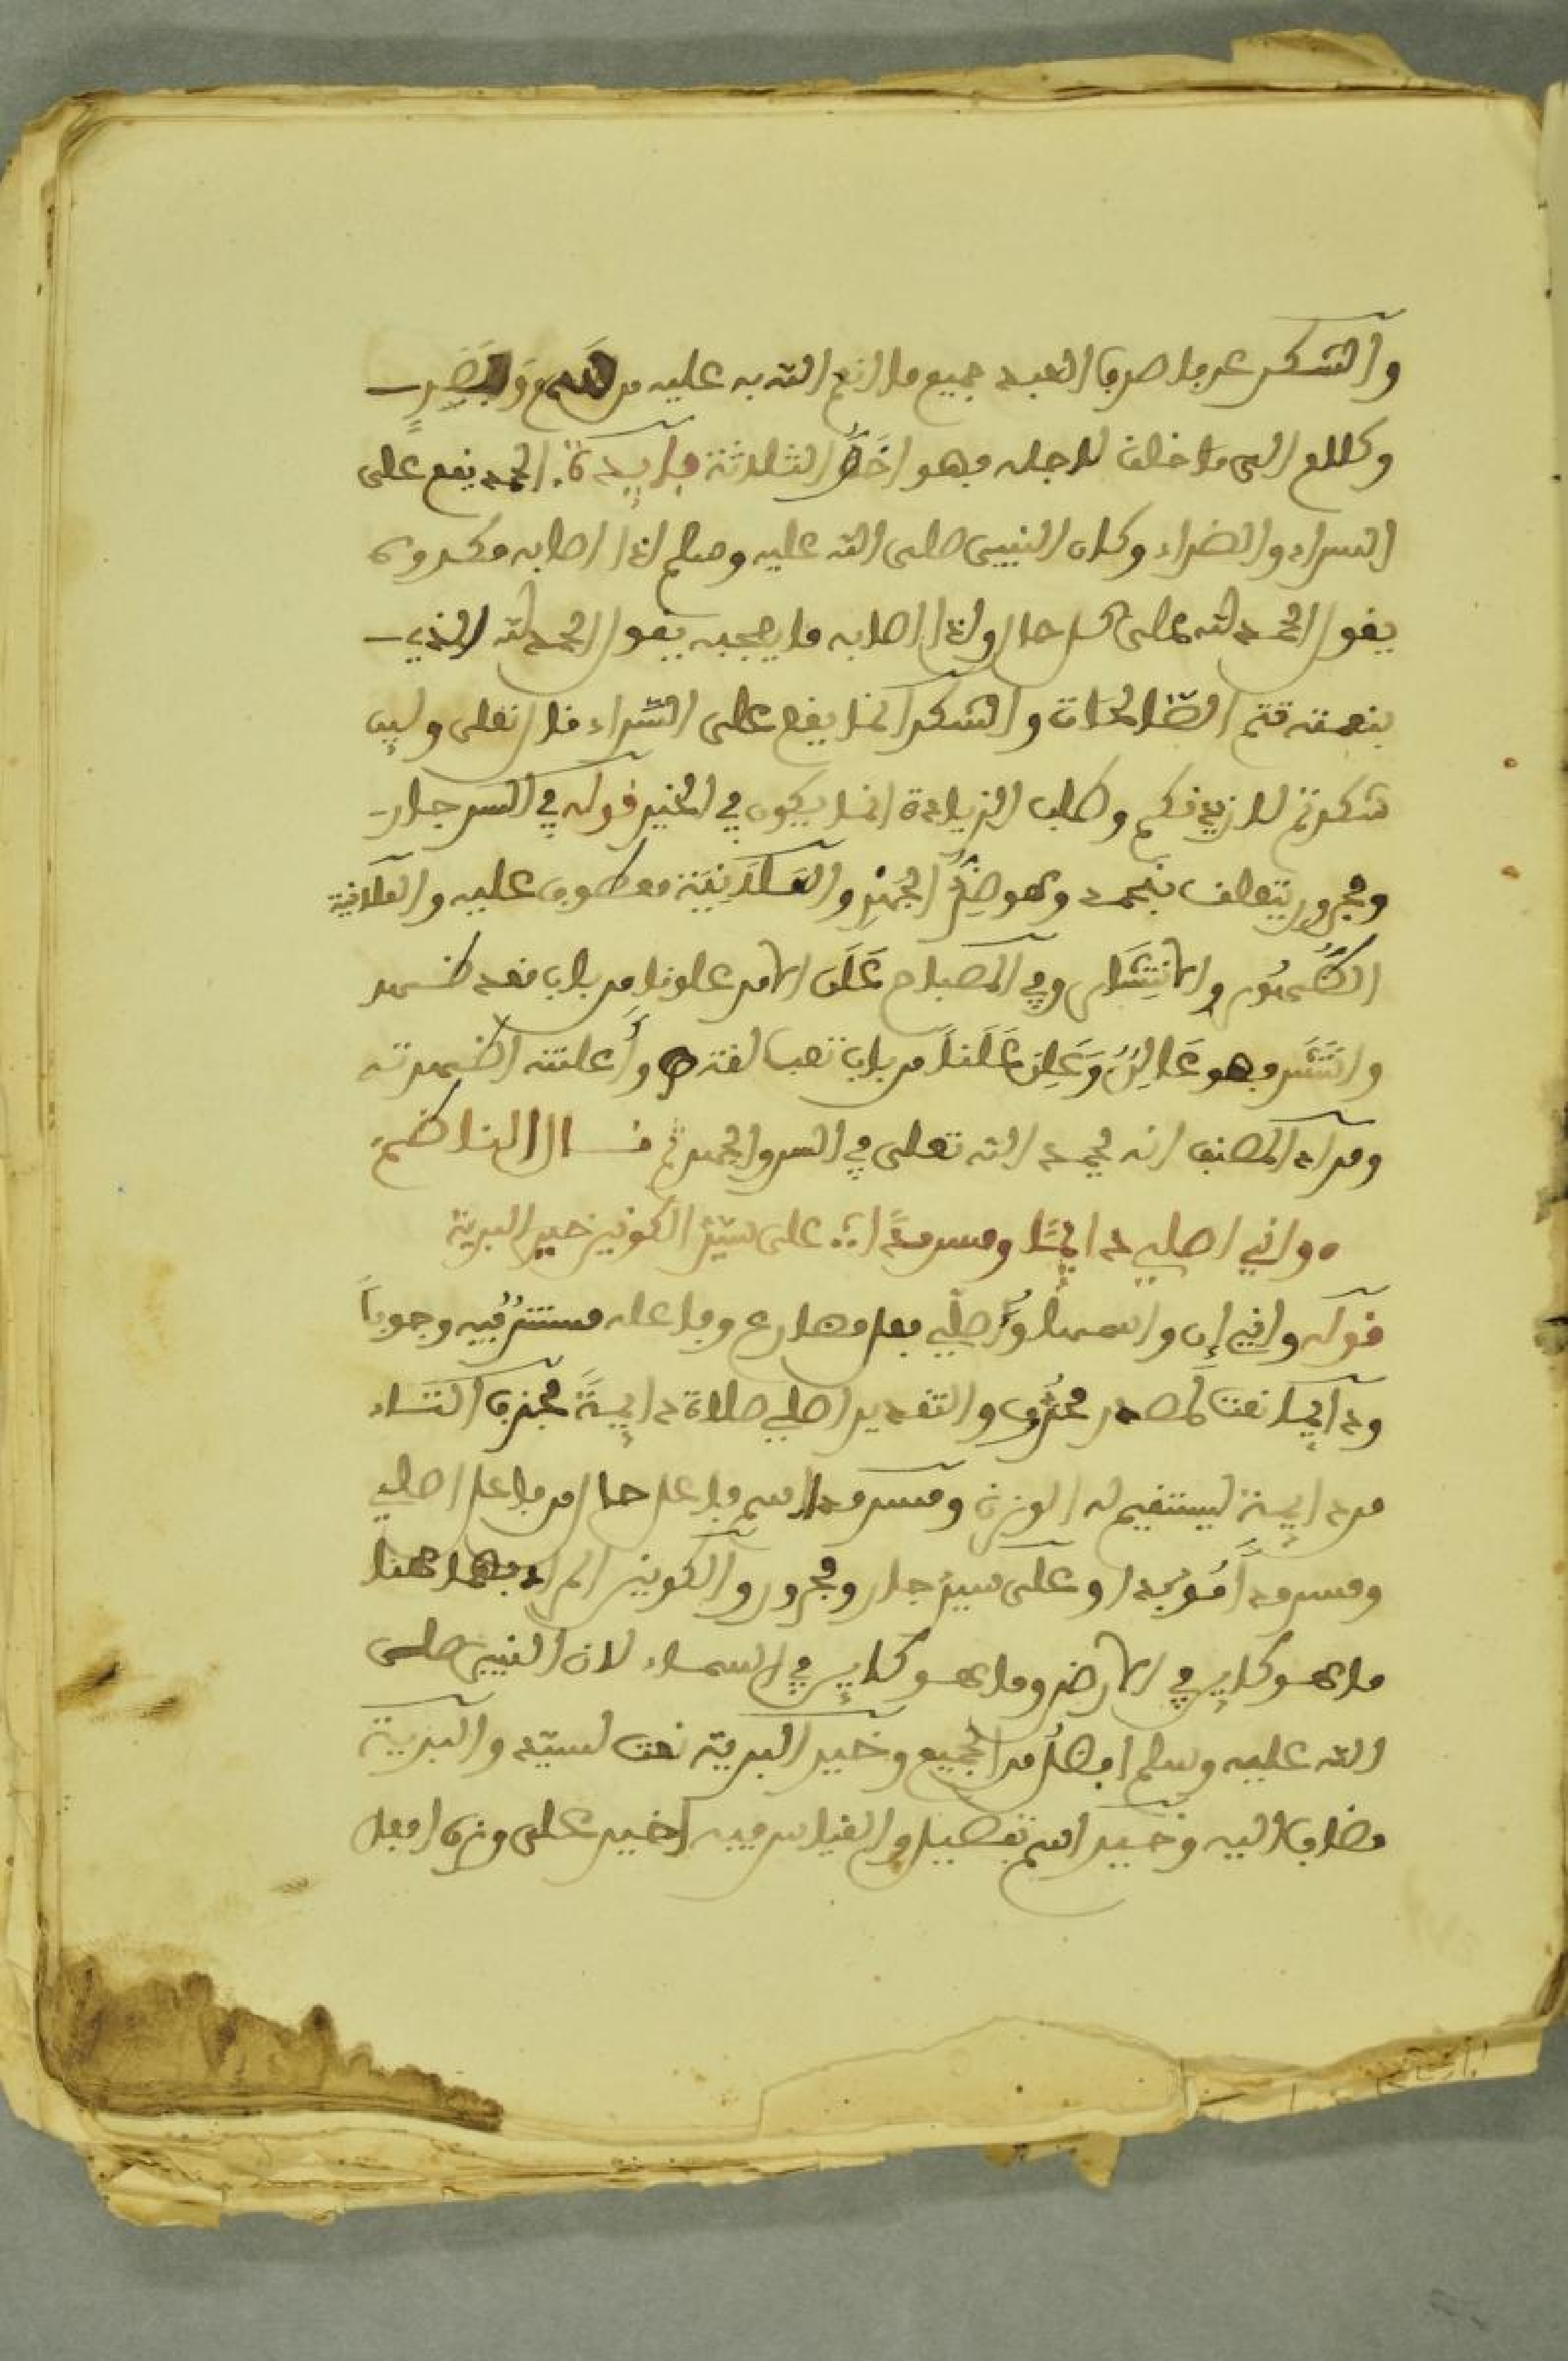 والشكر عرفا صرف العبد جميع ما انعم الله به عليه من سمع وبصر
وكلام الى ما خلق لاجله فهو اخص الثلاثة فايدة الحمد يقع على
السراء والضراء وكان النبيى صلى الله عليه وسلم اذا اصابه مكروه
يقول الحمد لله على كل حال واذا اصابه ما يعجبه يقول الحمد لله الذي
بنعمته تتم الصالحات والشكر انما يقع على السراء قال تعلى ولين
شكرتم لازيدنكم وطلب الزيادة انما يكون في الخير قوله في السر جار
ومجرور يتعلق بنحمد وهو ضد الجهر والعلانية معطوف عليه والعلانية
الظهور والانتشار وفي المصباح علن الامر علونا من باب قعد ظهر
وانتشر فهو عالن وعلن علنا من باب تعب لغة وأعلنته اظهرته
ومراد المصنف انه يحمد الله تعلى في السر والجهر ثم قال الناظم
واني اصلي دايما وسرمدا على سيد الكونين خير البرية
قوله واني إن واسمها وأصلي فعل مضارع وفاعله مستتر فيه وجوبا
ودايما نعت لمصدر محذوف والتقدير اصلي صلاة دايمة بحذف التاء
من دايمة ليستقيم له الوزن وسرمدا اسم فاعل حال من فاعل اصلي
وسرمدا مؤبدا وعلى سيد جار ومجرور والكونين المراد بهما هنا
ما هو كاين في الارض وما هو كاين في السماء لان النبيى صلى
الله عليه وسلم افضل من الجميع وخير البرية نعت لسيد والبرية
مضاف اليه وخير اسم تفضيل والقياس فيه اخير على وزن افعل